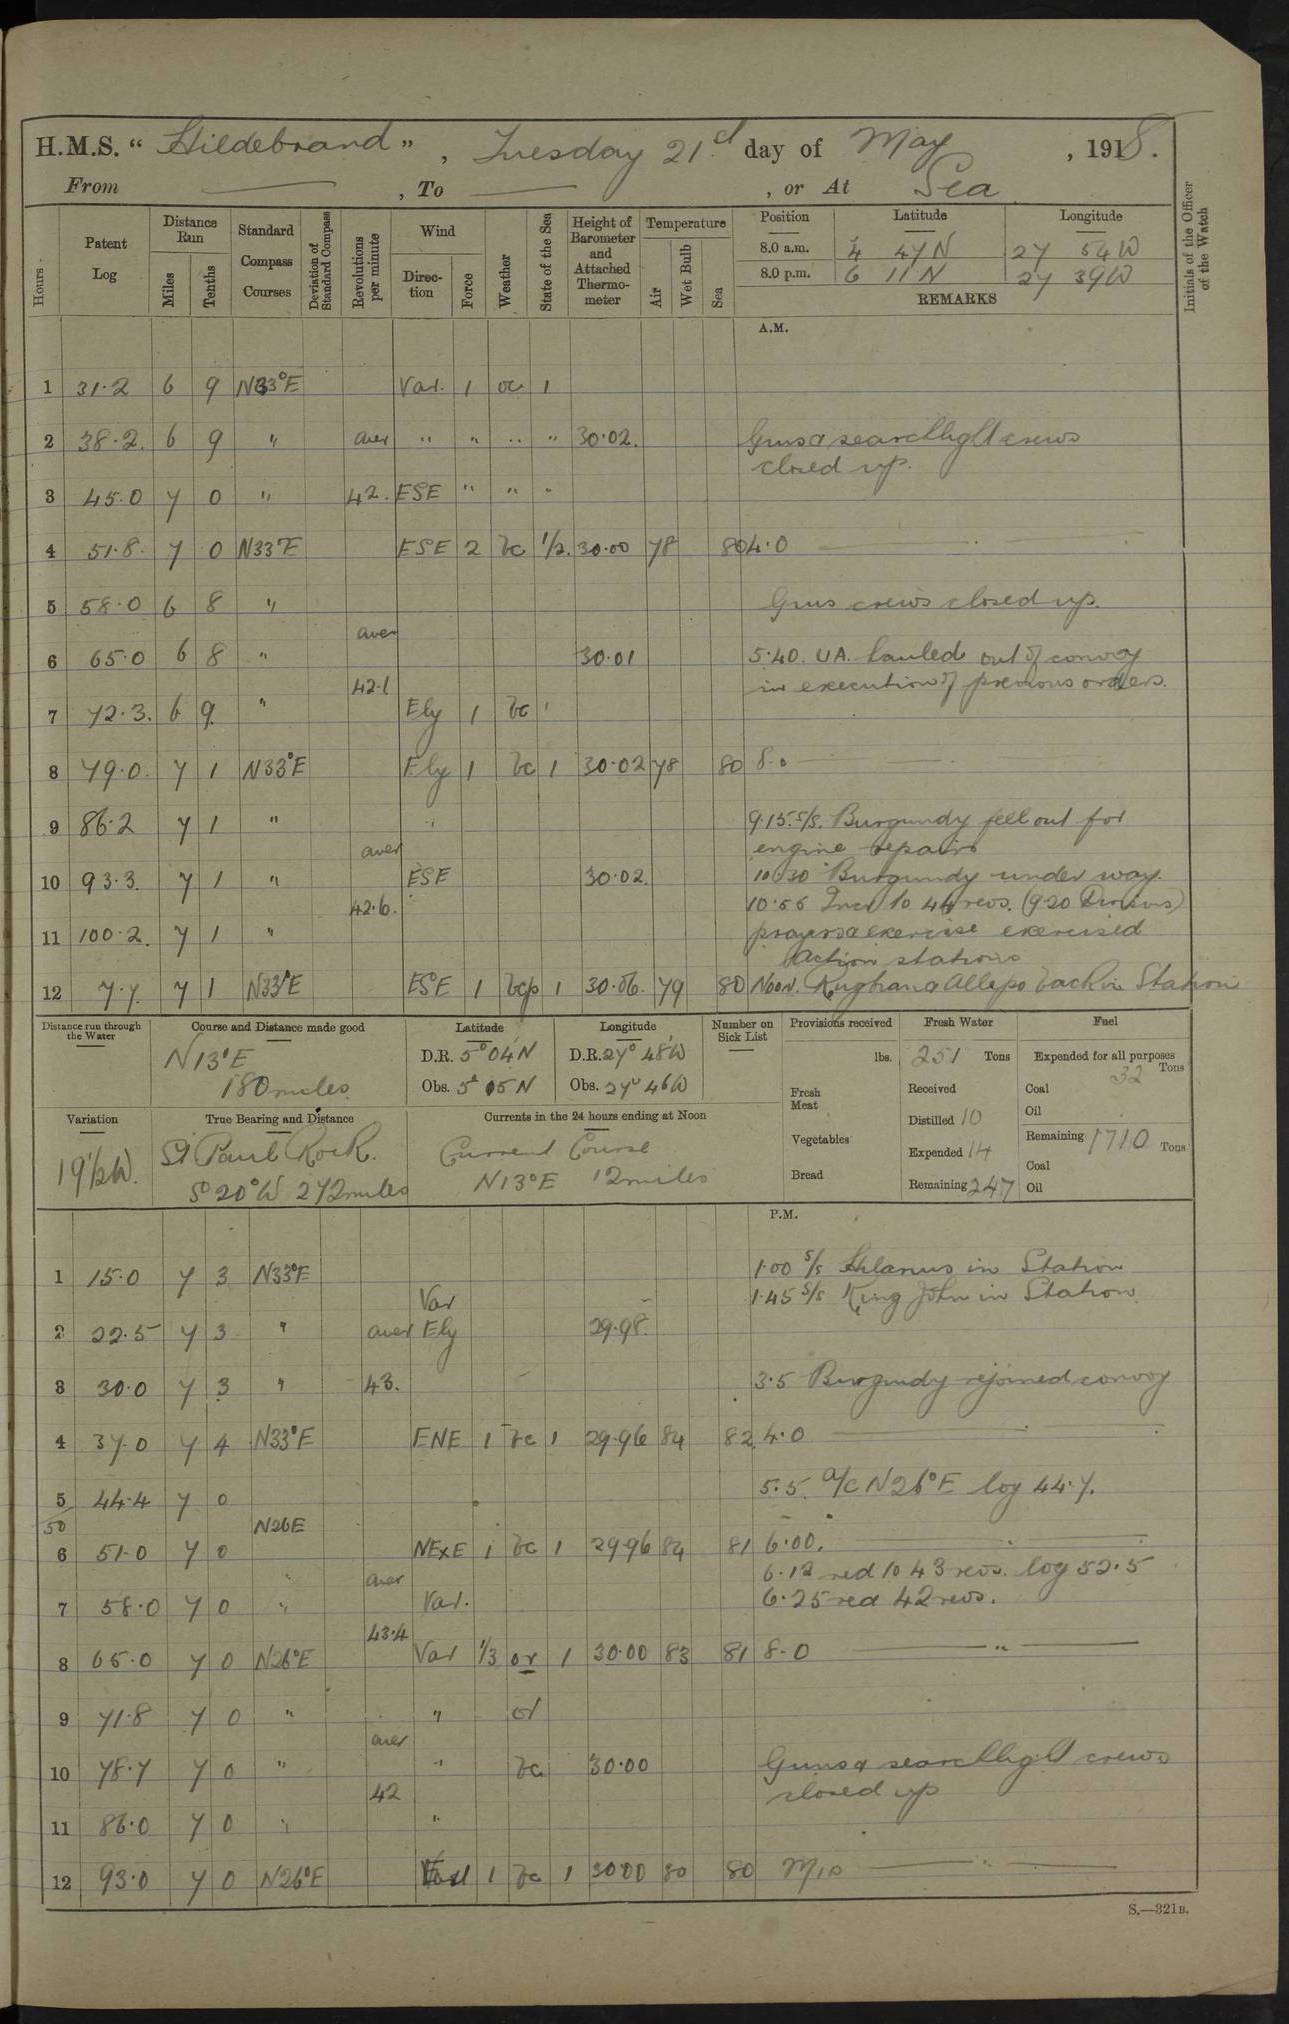 H.M.S. " Hildebrand " , Tuesday 21st day of May , 1918.
From —— , To —— , or At Sea
Hours
Patent Log
Distance Run
Miles
Tenths
Standard Compass Courses
Deviation of Standard Compass
Revolutions per minute
Wind
Direction
Force
Weather
State of the Sea
Height of Barometer and Attached Thermometer
Temperature
Air
Wet Bulb
Sea
Position Latitude Longitude
8.0 a.m. 4 47 N 27 54 W
8.0 p.m. 6 11 N 27 39 W
REMARKS
Initials of the Officer of the Watch
A.M.
1 31.2 6 9 N33°E Var. 1 oc 1
2 38.2. 6 9 " aver " " " " 30.02. Guns & searchlight crews
closed up.
3 45.0 7 0 " 42. ESE " " "
4 51.8. 7 0 N33°E ESE 2 bc 1/2. 30.00 78 80 4.0 —— " ——
5 58.0 6 8 " Guns crews closed up.
aver
6 65.0 6 8 " 30.01 5.40. UA. hauled out of convoy
42.1 in execution of previous orders.
7 72.3. 6 9 " Ely 1 bc 1
8 79.0. 7 1 N33°E Ely 1 bc 1 30.02 78 80 8.0 ——
9 86.2 7 1 " " 9.15. S/S. Burgundy fell out for
aver engine repairs
10 93.3. 7 1 " ESE 30.02. 10.30 Burgundy under way.
42.6. 10.56 Incr to 44 revs. (9.20 Divisions)
11 100.2. 7 1 " prayers & exercise exercised
action stations
12 7.7. 7 1 N33°E ESE 1 bcp 1 30.06. 79 80 Noon. & Allepo back in Station
Distance run through the Water
Course and Distance made good
N13°E
180 miles
Latitude
D.R. 5° 04' N
Obs. 5° 05 N
Longitude
D.R. 27° 48' W
Obs. 27° 46 W
Number on Sick List
Provisions received
lbs.
Fresh Meat
Vegetables
Bread
Fresh Water
251 Tons
Received
Distilled 10
Expended 14
Remaining 247
Fuel
Expended for all purposes
32 Tons
Coal
Oil
Remaining 1710 Tons
Coal
Oil
Variation
19 1/2 W.
True Bearing and Distance
St Paul Rock.
S 20° W 272 miles
Currents in the 24 hours ending at Noon
Current Course
N13°E 12 miles
P.M.
1 15.0 7 3 N33°E 1.00 S/S Hilarius in Station
Var 1.45 S/S King John in Station
2 22.5 7 3 " aver Ely 29.98.
3 30.0 7 3 " 43. 3.5 Burgundy rejoined convoy
4 37.0 7 4 N33°E ENE 1 bc 1 29.96 84 82. 4.0 —— " ——
5 44.4 7 0 5.5. a/c N26°E log 44.7.
50 N26E
6 51.0 7 0 NExE 1 bc 1 29.96 84 81 6.00. —— " ——
" aver 6.12 red to 43 revs. log 52.5
7 58.0 7 0 " Var. 6.25 red 42 revs.
43.4
8 65.0 7 0 N26°E Var 1/3 or 1 30.00 83 81 8.0 —— " ——
9 71.8 7 0 " "
aver
10 78.7 7 0 " " bc 30.00 Guns & searchlight crews
42 closed up
11 86.0 7 0 " "
12 93.0 7 0 N26°E 1 bc 1 30.00 80 80 Mid —— " ——
S.—321B.